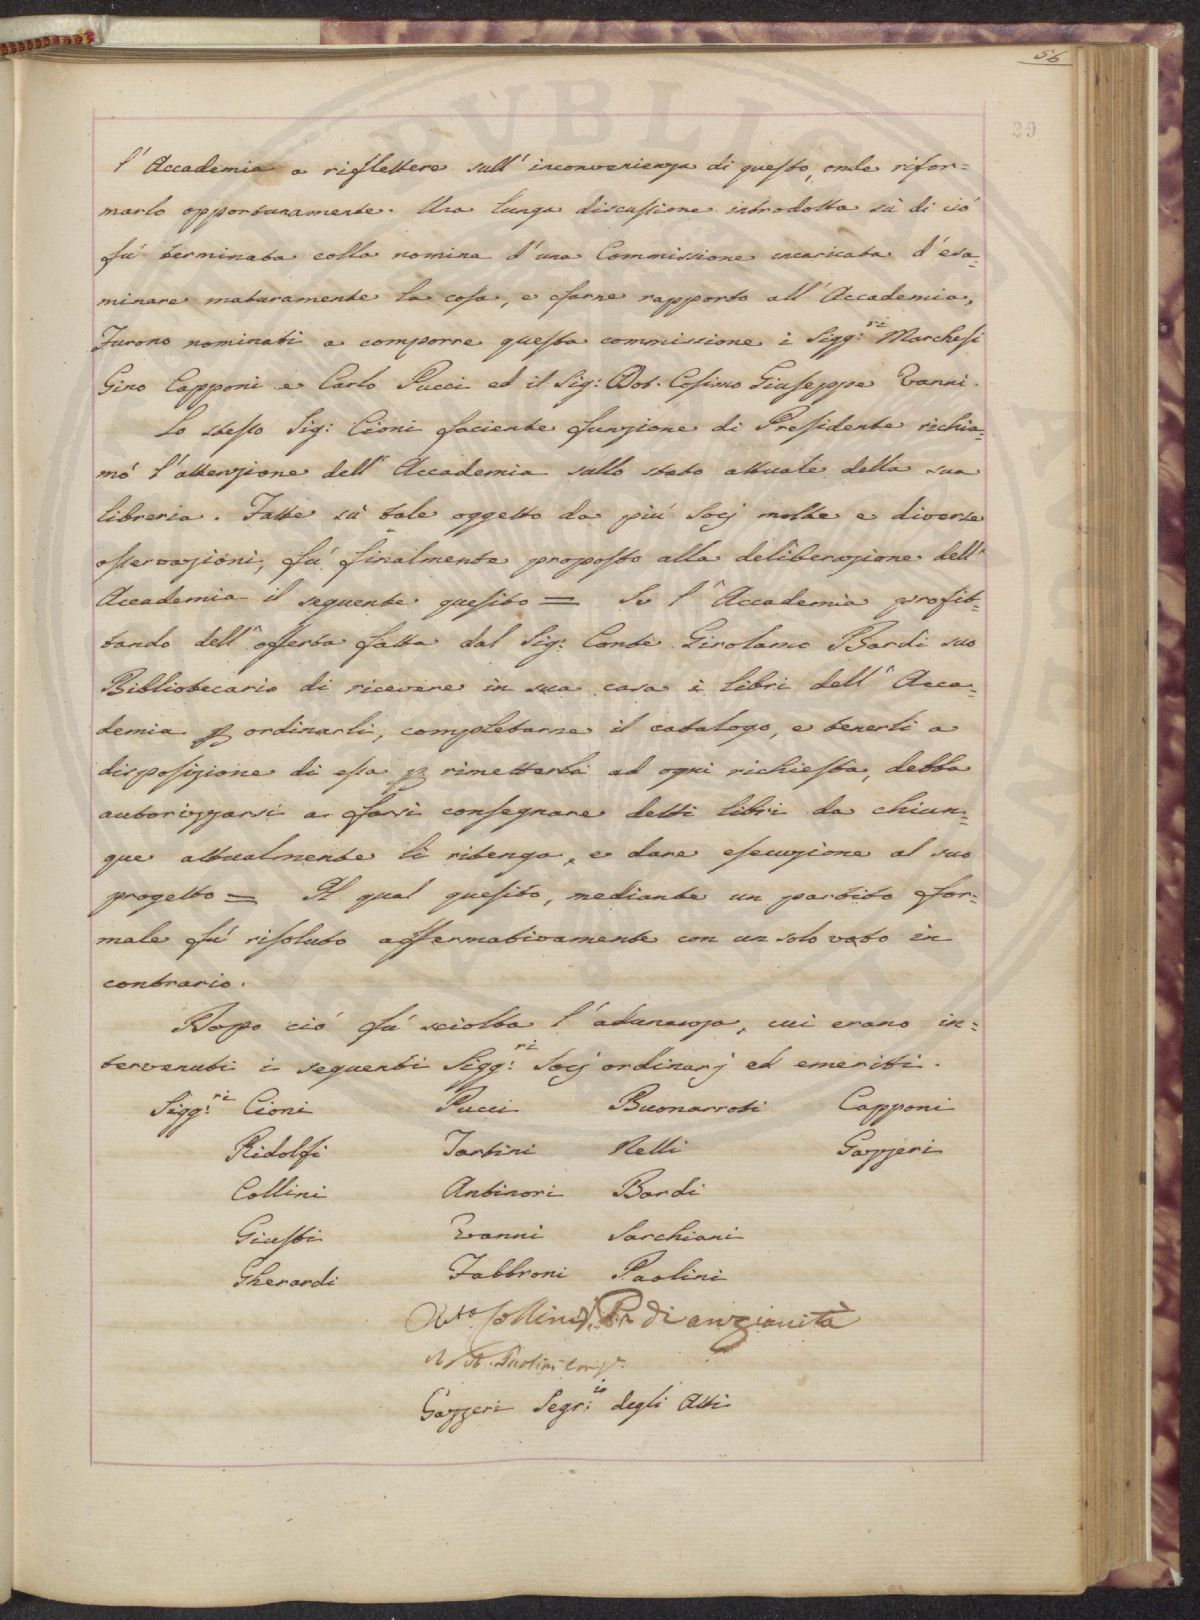 56
29
l'Accademia a riflettere sull'inconvenienza di questo, onde rifor=
marlo opportunamente. Una lunga discussione introdotta sù di ciò
fù terminata colla nomina d'una Commissione incaricata d'esa=
minare maturamente la cosa, e farne rapporto all'Accademia,
Furono nominati a comporre questa commissione i Sigg:ri Marchesi
Gino Capponi e Carlo Pucci ed il Sig: Dot. Cosimo Giuseppe Vanni.
Lo stesso Sig: Cioni faciente funzione di Presidente richia=
mò l'attenzione dell'Accademia sullo stato attuale della sua
libreria. Fatte sù tale oggetto da più Socj molte e diverse
osservazioni, fù finalmente proposto alla deliberazione dell'
Accademia il seguente quesito = Se l'Accademia profit=
tando dell'offerta fatta dal Sig: Conte Girolamo Bardi suo
Bibliotecario di ricevere in sua casa i libri dell'Acca=
demia p ordinarli, completarne il catalogo, e tenerli a
disposizione di essa p rimetterli ad ogni richiesta, debba
autorizzarsi a farsi consegnare detti libri da chiun=
que attualmente li ritenga, e dare esecuzione al suo
progetto = Il qual quesito, mediante un partito for=
male fù risoluto affermativamente con un solo voto in
contrario.
Dopo ciò fù sciolta l'adunanza, cui erano in=
tervenuti i seguenti Sigg:ri Socj ordinarj ed emeriti.
Sigg:ri Cioni Pucci Buonarroti Capponi
Ridolfi Tartini Nelli Gazzeri
Collini Antinori Bardi
Giusti Vanni Sarchiani
Gherardi Fabbroni Paolini
Collini di anzianità
Paolini
Gazzeri Segr:io degli Atti